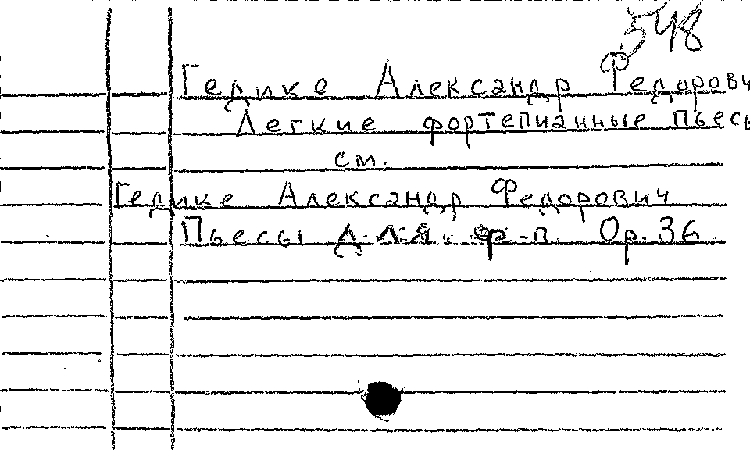 548
Гедике Александр Федорович
Легкие фортепианные пьесы
см.
Гедике Александр Федорович
Пьесы для ф-п. Op. 36